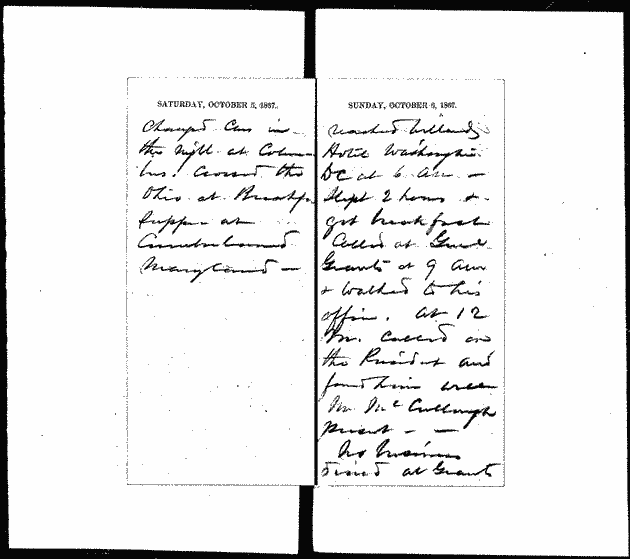 SATURDAY, OCTOBER 5, 1867.
Changed Cars in
the night at Colum
bus. Crossed the
Ohio at Breakfast
Supper at
Cumberland
Maryland —
SUNDAY, OCTOBER 6, 1867.
reached Willards
Hotel Washington
DC at 6 am —
Slept 2 hours +
got breakfast
Called at Genl
Grants at 9 am
+ walked to his
office. at 12
M. called on
the President and
found him
Mr McCullough
present — —
No business
dined at Grants